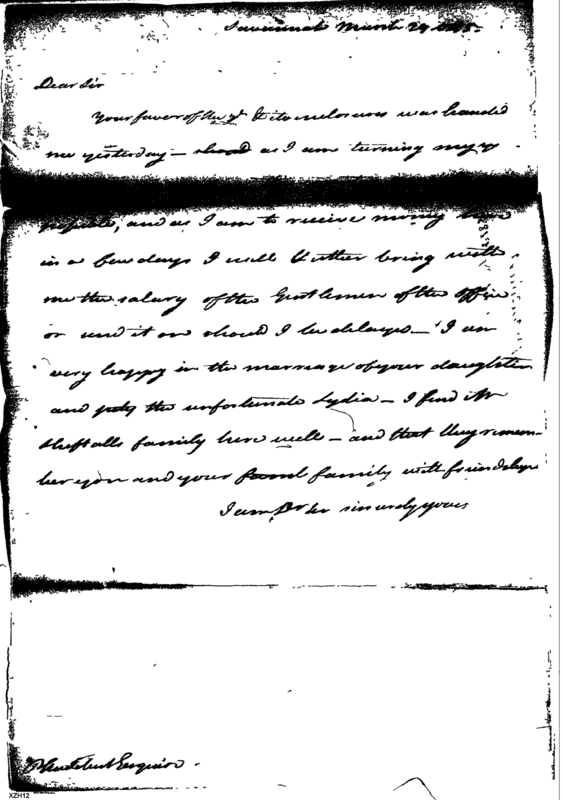 Savannah March 29
Dear Sir
Your favor of the & its enclosures was handed
me yesterday — as I am turning my
possible, and as I am to receive money here
in a few days I will Either bring with
me the salary of the Gentlemen of the office
or send it on should I be delayed — I am
very happy in the marriage of your daughter
and pity the unfortunate Lydia — I find Mr
Sheftalls family here well — and that they remem-
ber you and your family with friendship
I am Dr Sir sincerely yours
Esquire.
XZH12